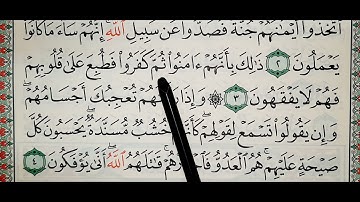 ٱتَّخَذُوٓا۟ أَيْمَـٰنَهُمْ جُنَّةً فَصَدُّوا۟ عَن سَبِيلِ ٱللَّهِ ۚ إِنَّهُمْ سَآءَ مَا كَانُوا۟
يَعْمَلُونَ ٢ ذَٰلِكَ بِأَنَّهُمْ ءَامَنُوا۟ ثُمَّ كَفَرُوا۟ فَطُبِعَ عَلَىٰ قُلُوبِهِمْ
فَهُمْ لَا يَفْقَهُونَ ٣ ۞ وَإِذَا تُعْجِبُكَ أَجْسَامُهُمْ ۖ
وَإِن يَقُولُوا۟ تَسْمَعْ لِقَوْلِهِمْ ۖ كَأَنَّهُمْ خُشُبٌ مُّسَنَّدَةٌ ۖ يَحْسَبُونَ كُلَّ
صَيْحَةٍ عَلَيْهِمْ ۚ هُمُ ٱلْعَدُوُّ قَـٰتَلَهُمُ ٱللَّهُ ۖ أَنَّىٰ يُؤْفَكُونَ ٤